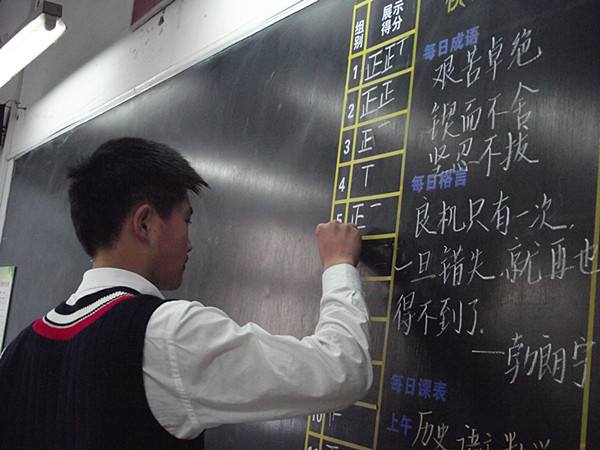 组别 展示得分
1 正正丅
2 正正
3 正一
4 丅
5 正一
10
每日成语
艰苦卓绝
锲而不舍
坚忍不拔
每日格言
良机只有一次,
一旦错失,就再也
得不到了.
——勃朗宁
每日课表
上午 历史 语